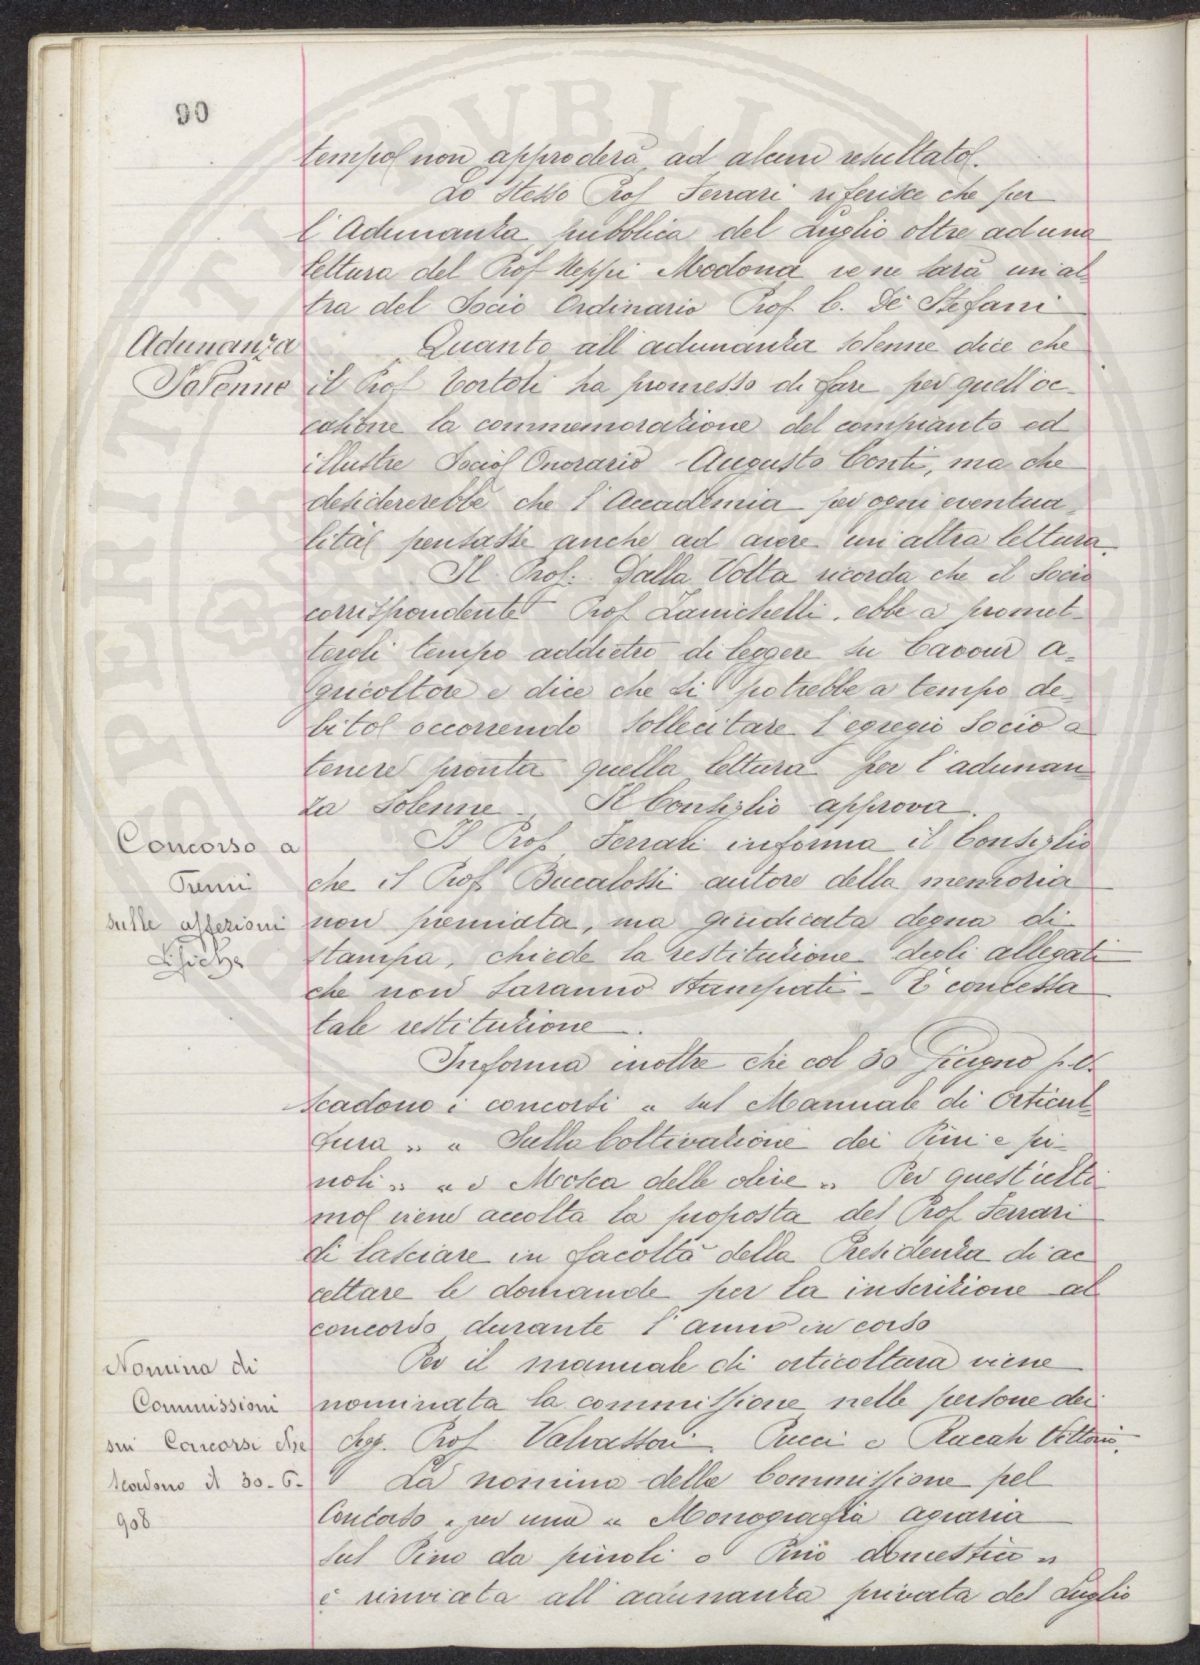 90
tempo non approderà ad alcun resultato.
Lo stesso Prof Ferrari riferisce che per
l'Adunanza pubblica del Luglio oltre ad una
lettura del Prof Neppi Modona ve ne sarà un'al-
tra del Socio Ordinario Prof C. De Stefani
Adunanza
Solenne
Quanto all'adunanza solenne dice che
il Prof Tortoli ha promesso di fare per quell'oc-
casione la commemorazione del compianto ed
illustre Socio Onorario Augusto Conti, ma che
desidererebbe che l'Accademia per ogni eventua-
lità pensasse anche ad avere un'altra lettura.
Il Prof: Dalla Volta ricorda che il Socio
corrispondente Prof Zanichelli ebbe a promet-
tergli tempo addietro di leggere su Cavour a-
gricoltore e dice che si potrebbe a tempo de-
bito occorrendo sollecitare l'egregio Socio a
tenere pronta quella lettura per l'adunan-
za solenne. Il Consiglio approva.
Concorso a
Premi
sulle affezioni
Tisiche
Il Prof Ferrari informa il Consiglio
che il Prof Bucalossi autore della memoria
non premiata, ma giudicata degna di
stampa, chiede la restituzione degli allegati
che non saranno stampati - È concessa
tale restituzione.
Informa inoltre che col 30 Giugno p.v.
scadono i concorsi " sul Manuale di Orticul-
tura " " Sulla Coltivazione dei Pini e pi-
noli " " e Mosca delle olive " Per quest'ulti-
mo viene accolta la proposta del Prof Ferrari
di lasciare in facoltà della Presidenza di ac
cettare le domande per la inscrizione al
concorso durante l'anno in corso
Nomina di
Commissioni
sui Concorsi che
scadono il 30-6-
908
Per il manuale di orticoltura viene
nominata la commissione nelle persone dei
Sigg. Prof Valvassori, Pucci e Racah Vittorio.
La nomina della Commissione pel
Concorso " per una " Monografia agraria
sul Pino da pinoli o Pino domestico "
è rinviata all'adunanza privata del Luglio